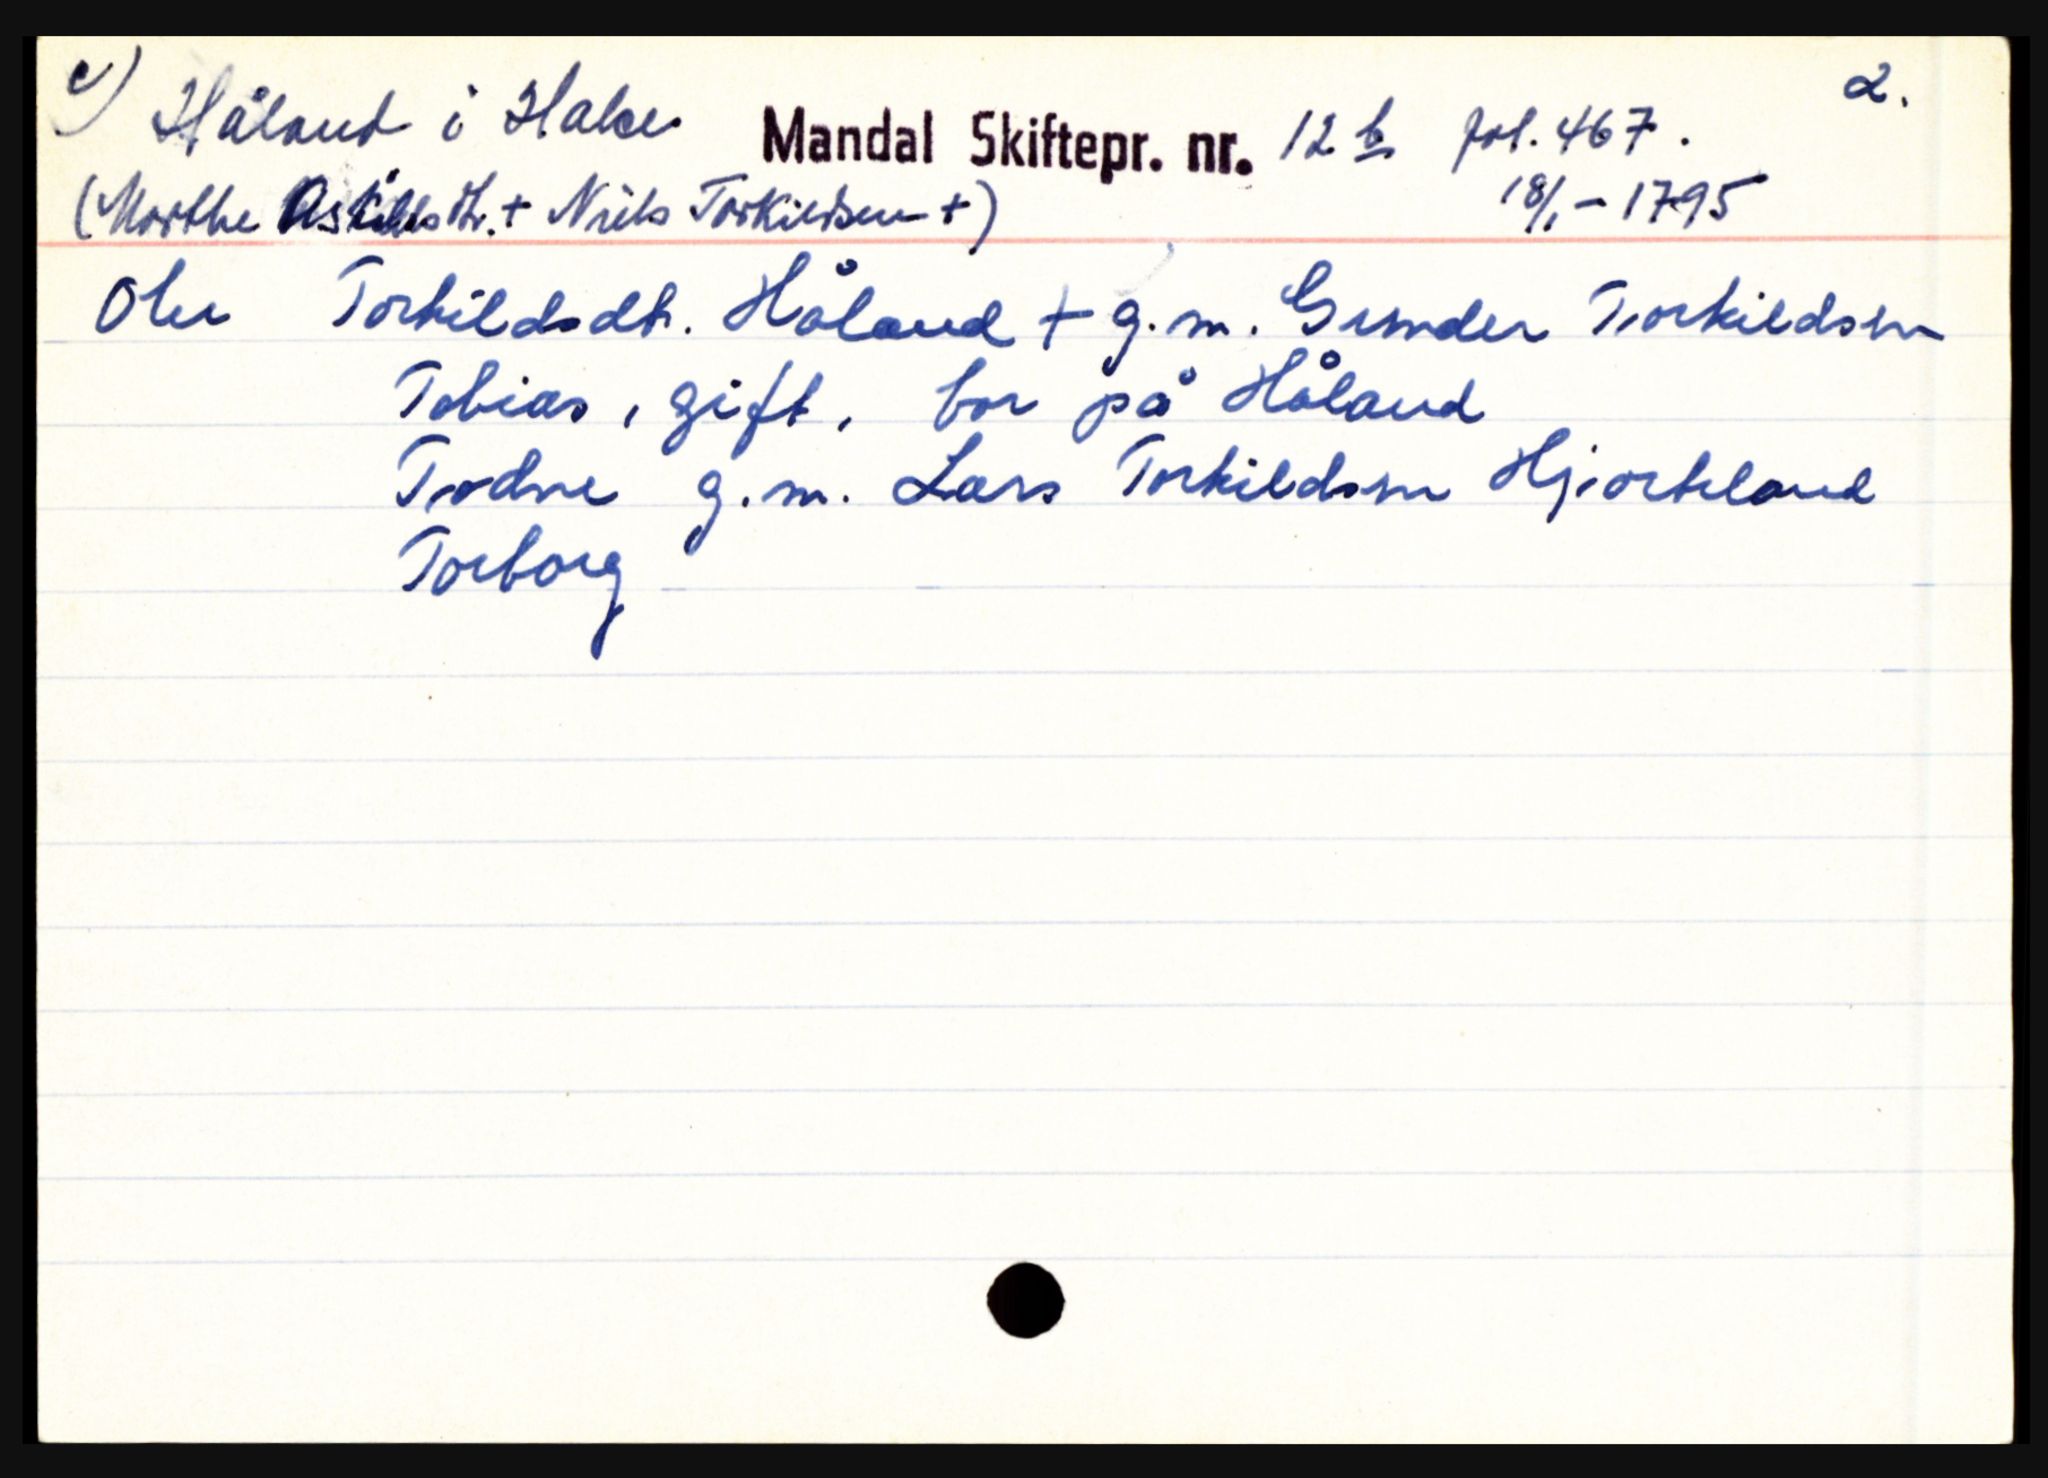 c) Håland i Halse Mandal Skiftepr. nr. 12 b fol. 467. 2.
(Marthe Askildsdtr. + Niels Torkildsen +) 18/1 - 1795
Torkildsdtr. Håland + g.m. Gunder Torkildsen
Tobias, gift, bor på Håland
Todne g.m. Lars Torkildsen Hjorteland
Torborg